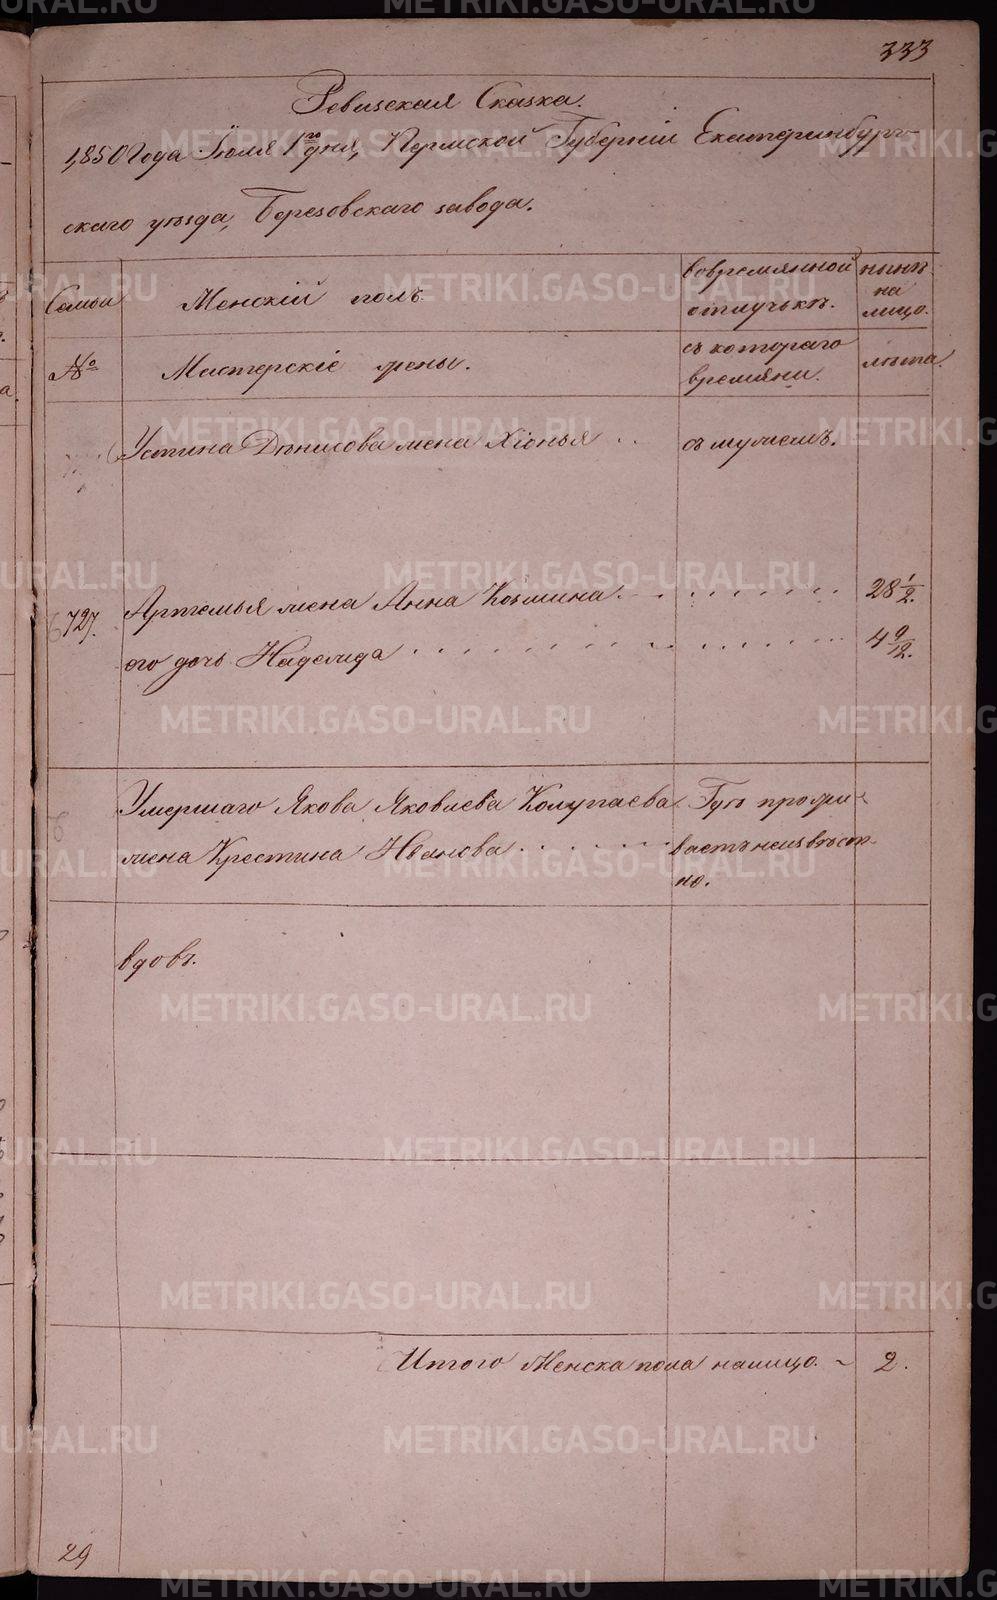 333
Ревизская Сказка.
1850 Года Іюля 1го дня, Пермской Губерніи Екатеринбург-
скаго уѣзда, Березовскаго завода.
Семьи
Женскій полъ
во времянной отлучькѣ.
нынѣ на лицо.
№
Мастерскіе жены.
съ котораго времяни.
лѣта.
Устина Дѣнисова жена Хіонья
съ мужемъ.
727.
Артемья жена Анна Козмина
28 1/2.
его дочь Надежда
4 9/12.
Умершаго Якова Яковлева Колупаева
Гдѣ прожи-
жена Крестина Иванова
ваетъ неизвѣст-
но.
вдовъ.
Итого Женска пола налицо. ~ 2.
29
METRIKI.GASO-URAL.RU